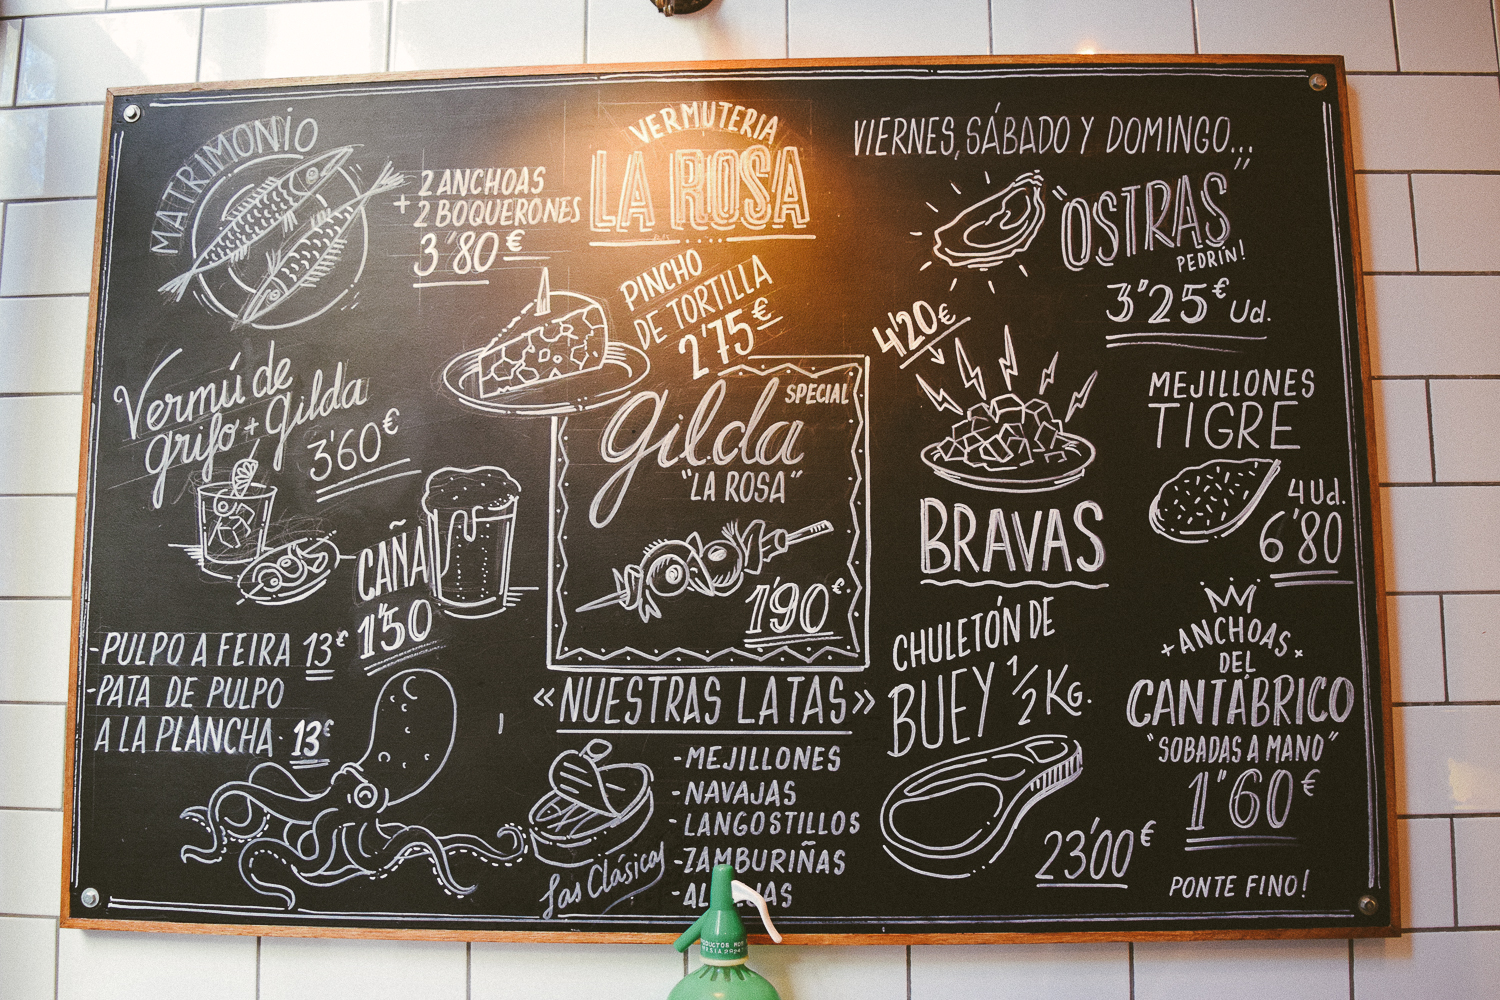 MATRIMONIO
2 ANCHOAS
+ 2 BOQUERONES
3'80 €
VERMUTERIA
LA ROSA
VIERNES, SÁBADO Y DOMINGO...
"OSTRAS"
PEDRÍN!
3"25 € Ud.
PINCHO
DE TORTILLA
2'75 €
4'20 €
BRAVAS
MEJILLONES
TIGRE
4 Ud.
6'80
Vermú de
grifo + Gilda
3'60 €
CAÑA
1'50
SPECIAL
Gilda
"LA ROSA"
1'90 €
-PULPO A FEIRA 13 €
-PATA DE PULPO
A LA PLANCHA 13 €
«NUESTRAS LATAS»
-MEJILLONES
-NAVAJAS
-LANGOSTILLOS
-ZAMBURIÑAS
Las Clásicas
CHULETÓN DE
BUEY 1/2 KG.
23'00 €
+ANCHOAS+
DEL
CANTÁBRICO
"SOBADAS A MANO"
1"60 €
PONTE FINO!